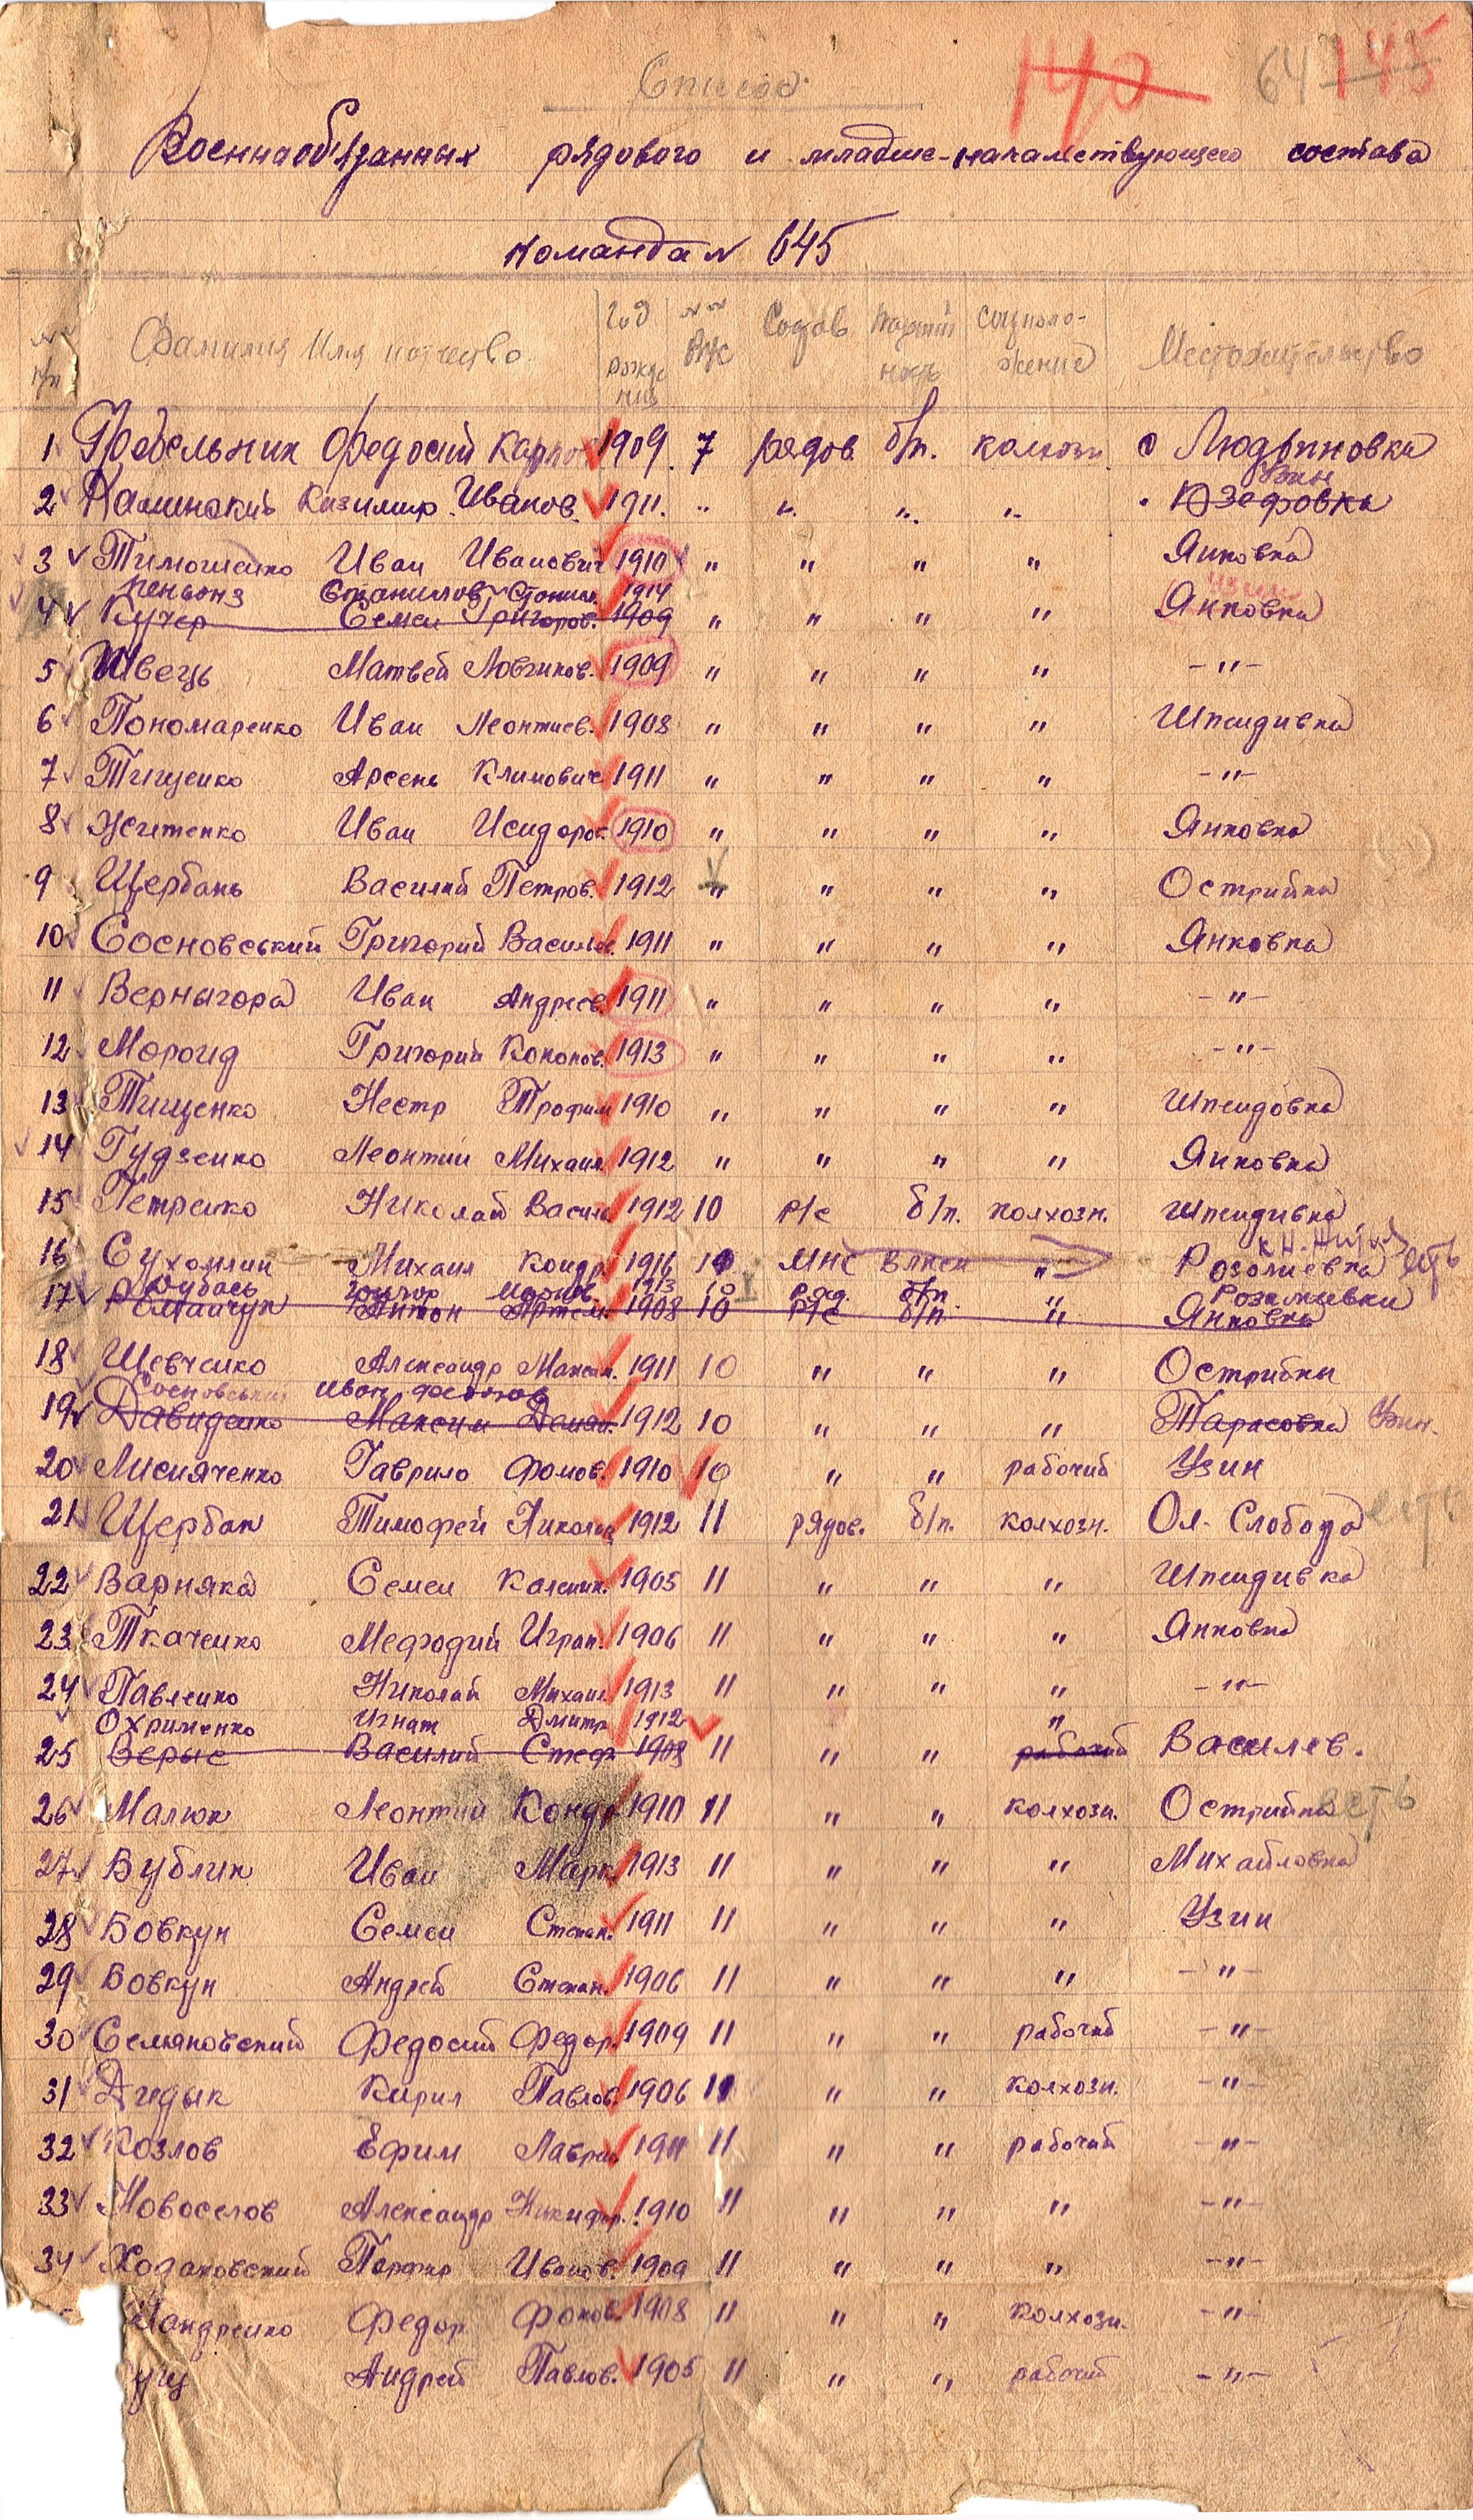 Список
140 64 145
Военнообязанных рядового и младше-начальствующего состава
Команда № 645
№№ п/п Фамилия Имя отчество Год рождения №№ ВУС Состав Партийность соцположение Местожительство
1 Гребельник Федосий Карпов 1909 7 рядов б/п. колхозн с Людвиновка
Узин
2 Каминский Казимир Иванов. 1911. " " " " " Юзефовка
3 Тимошенко Иван Иванович 1910 " " " " Янковка
Пеньонз Станислов Станисл. 1914
4 Кучер Семен Григоров. 1909 " " " " Янковка
5 Швець Матвей Логвинов. 1909 " " " " -"-
6 Пономаренко Иван Леонтиев. 1908 " " " " Шпендивка
7 Тищенко Арсень Климович 1911 " " " " -"-
8 Житенко Иван Исидоров. 1910 " " " " Янковка
9 Щербань Василий Петров. 1912 " " " " Острийка
10 Сосновський Григорий Васильев. 1911 " " " " Янковка
11 Вернигора Иван Андреев. 1911 " " " " -"-
12 Мороид Григорий Кононов. 1913 " " " " -"-
13 Тищенко Нестр Трофим 1910 " " " " Шпендовка
14 Гудзенко Леонтий Михаил 1912 " " " " Янковка
15 Петренко Николай Васил 1912 10 р/с б/п. колхозн. Шпендивка
16 Сухомлин Михаил Кондр 1916 10 МНС ВЛКСМ " Розалиевка есть
Дубась 1913 10 ряд. б/п " Розалиевки
17 Романчук Антон Артем. 1908 10 р/с б/п. Янковка
18 Шевченко Александр Максим. 1911 10 " " " Острийки
Сосновський Иван Федотов
19 Давиденко Максим Демян. 1912 10 " " " Тарасовка Узин.
20 Лисияченко Гаврило Фомов. 1910 10 " " рабочий Узин
21 Щербак Тимофей Николай 1912 11 рядов. б/п. колхозн. Ол. Слобода есть
22 Варняка Семен Каленик. 1905 11 " " " Шпендивка
23 Ткаченко Мефодий Играт. 1906 11 " " " Янковка
24 Павленко Николай Михаил 1913 11 " " " -"-
Охрименко Игнат Дмитр 1912 "
25 Верыс Василий Стеф 1908 11 " " рабочий Василев.
26 Малюк Леонтий Кондр 1910 11 " " колхозн. Острийка есть
27 Бублик Иван Марк. 1913 11 " " " Михайловка
28 Бовкун Семен Степан. 1911 11 " " " Узин
29 Бовкун Андрей Степан. 1906 11 " " " -"-
30 Семяновский Федосий Федор. 1909 11 " " рабочий -"-
31 Дидык Кирил Павлов. 1906 11 " " колхозн. -"-
32 Козлов Ефим Лаврен 1911 11 " " рабочий -"-
33 Новоселов Александр Никифор. 1910 11 " " " -"-
34 Ходаковский Парфир Иванов. 1909 11 " " " -"-
Кондренко Федор Фоков. 1908 11 " " колхозн. -"-
уц Андрей Павлов. 1905 11 " " рабочий -"-